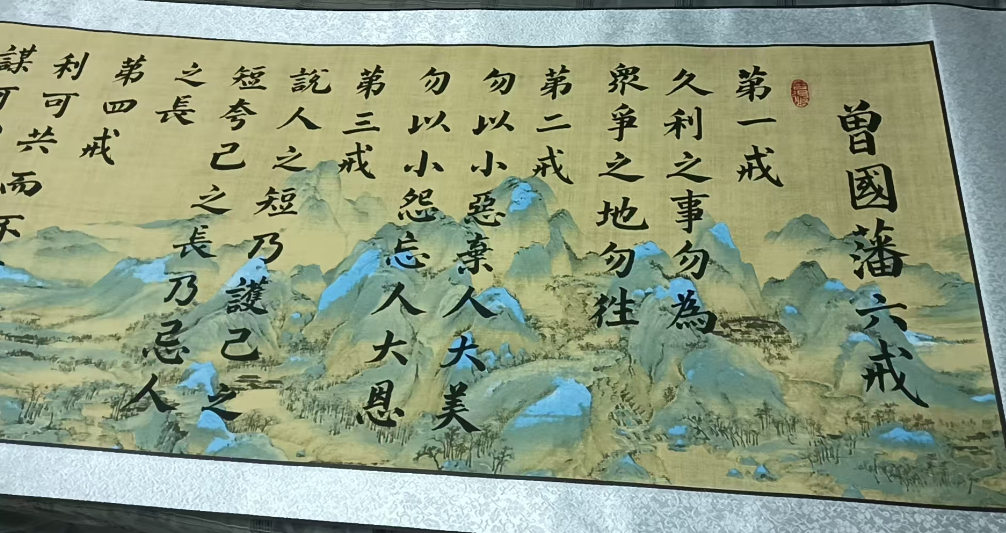 曾國藩六戒
第一戒
久利之事勿為
衆爭之地勿徃
第二戒
勿以小惡棄人大美
勿以小怨忘人大恩
第三戒
說人之短乃護己之
短夸己之長乃忌人
之長
第四戒
利可共而不
謀可